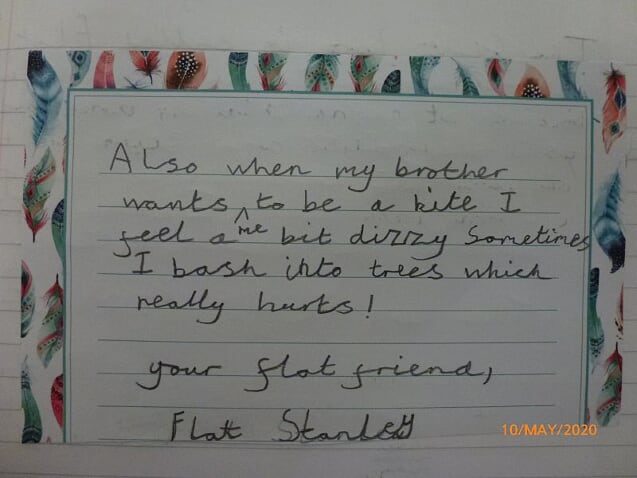 Also when my brother
wants me to be a kite I
feel a bit dizzy Sometimes
I bash into trees which
really hurts!
your flat friend,
Flat Stanley
10/MAY/2020